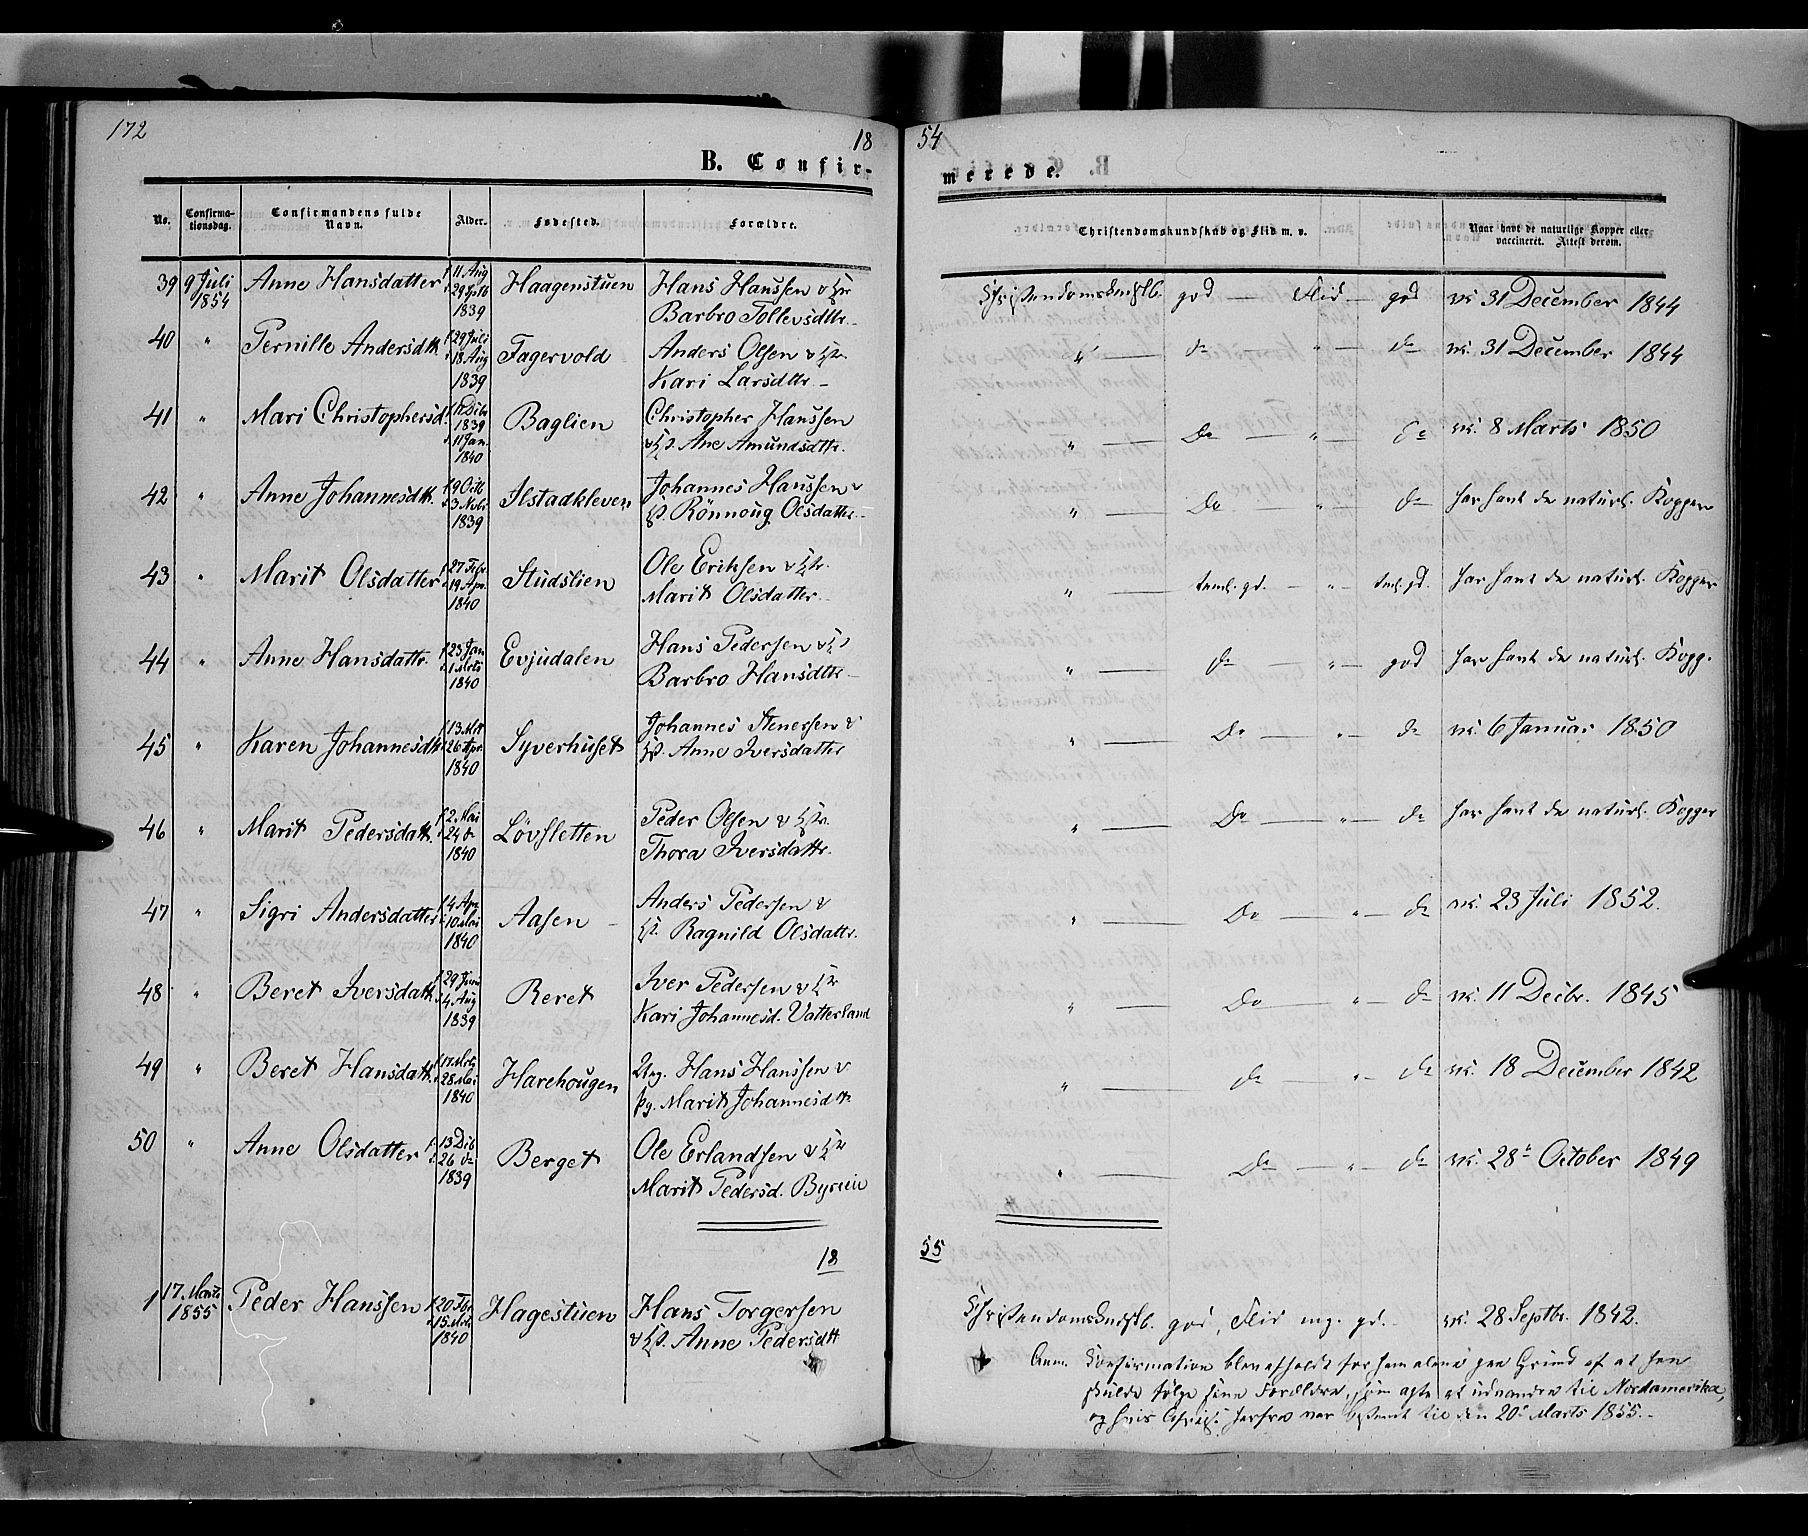 172
18
54
B. Confir-
merede.
No. Confirma-tionsdag. Confirmandens fulde Navn. Alder. Fødested. Forældre. Christendomskundskab og Flid m. v. Naar havt de naturlige Kopper eller vaccineret. Attest derom.
39 9 Juli 1854 Anne Hansdatter f 11 Aug d 29 Sptb 1839 Haagenstuen Hans Hanssen v H Barbro Tollevsdttr. Christendomskundskb. god — Flid — god vc. 31 December 1844
40 " Pernille Andersdtt. f 29 Juli d 18 Aug 1839 Fagervold Anders Olsen v Kari Larsdttr. " — do — " — do vc. 31 December 1844
41 " Mari Christophersd. 1839 11 Jan. 1840 Baglien Christopher Hanssen v Ane Amundsdttr. " — Do — " — do vc. 8 Marts 1850
42 " Anne Johannesdtt. f 9 Octb d 3 Nvbr 1839 Ilstadkleven Johannes Hanssen v Rönnoug Olsdatter " — Do — " — do har havt de naturl. Kopper
43 " Marit Olsdatter f 27 Febr. d 19 Apr. 1840 Studslien Ole Eriksen v Marit Olsdatter. " — teml. gd. — " — teml. gd. har havt de naturl. Kopper
44 " Anne Hansdattr. f 23 Jan d 1 Mrts 1840 Evjudalen Hans Pedersen v Barbro Hansdttr " — do — " — god har havt de naturl. Kopp.
45 " Karen Johannesdtt f 13 Mrt 26 Apr. 1840 Syverhuset Johannes Stenersen v Anne Iversdatter " — Do — " — do vc. 6 Januar 1850
46 " Marit Pedersdatt. f 2 Mai d 24 do 1840 Lövsletten Peder Olsen v Thora Iversdattr. " — Do — " — do har havt de naturl. Kopper
47 " Sigri Andersdatter f 4 Apr d 10 Mai 1840 Aasen Anders Pedersen v Ragnild Olsdattr. " — Do — " — do vc. 23 Juli 1852.
48 " Beret Iversdatt. f 29 Juni d 4 Aug 1839 Reret Iver Pedersen v Kari Johannesd. Vatterland " — Do — " — do vc. 11 Decbr. 1845
49 " Beret Hansdatt. f 17 Mrts d 28 Mai 1840 Harehougen Ung. Hans Hanssen v pg. Marit Johannesdtt. " — do — " — do vc. 18 December 1842
50 " Anne Olsdatter f 13 Dcb d 26 do 1839 Berget Ole Erlandsen v Marit Pedersd. " — Do — " — do vc. 28 October 1849
18
55
1 17. Marts 1855 Peder Hanssen f 20 Fbr. d 15 Mrts 1840 Hagestuen Hans Torgersen v Anne Pedersdtt Christendomskundskb. god, Flid mg. gd. vc. 28 Septbr. 1842.
Anm. Konfirmation blev afholdt for ham alene paa Grund af at han
skulde følge sine Forældre, som agte at udvandre til Nordamerika,
og hvis Afreise herfra var bestemt til den 20 Marts 1855.